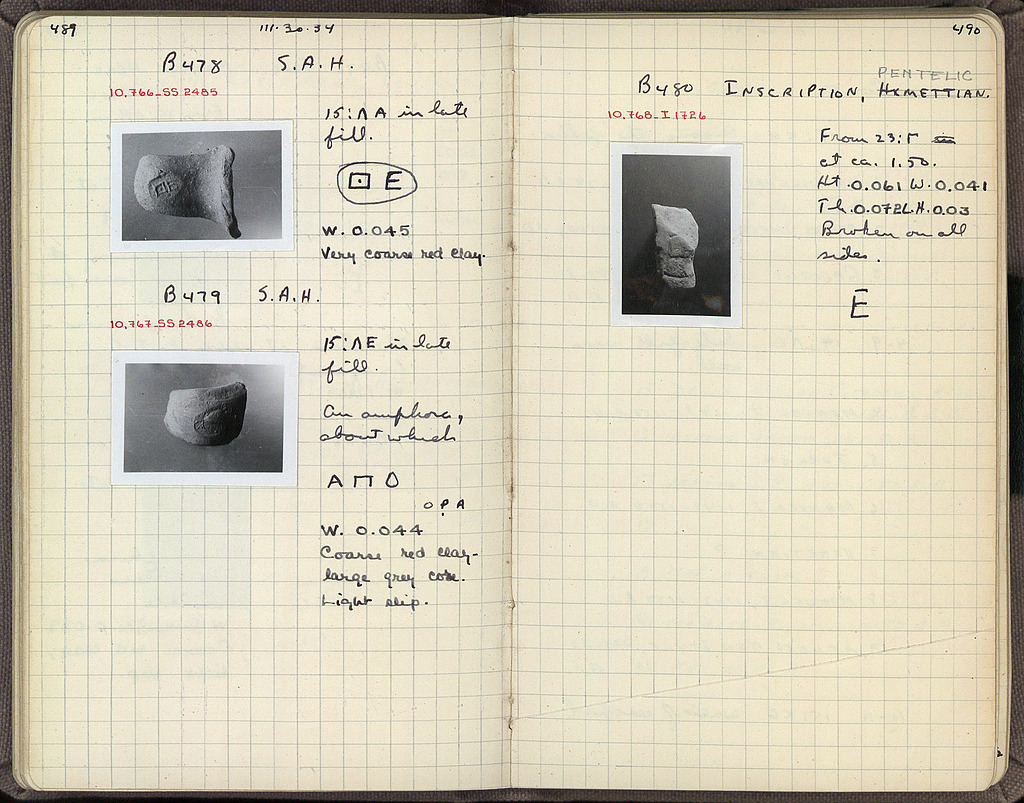 489
III·30·34
B478 S.A.H.
10.766_SS 2485
15:ΛA in late
fill.
⊡ E
W. 0.045
Very coarse red clay.
B479 S.A.H.
10.767_SS 2486
15:ΛE in late
fill.
An amphora,
about which
ΑΠΟ
ΟΡΑ
W. 0.044
Coarse red clay-
large grey core.
Light slip.
490
PENTELIC
B480 INSCRIPTION, HYMETTIAN.
10.768_I 1726
From 23:Γ
at ca. 1.50.
Ht .0.061 W. 0.041
Th.0.072 L.H. 0.03
Broken on all
sides.
E